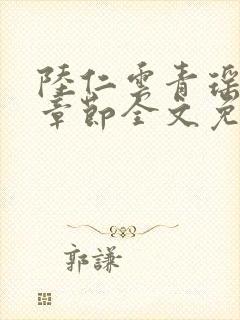 陸仁雲青瑶
章節全文免
郭謙